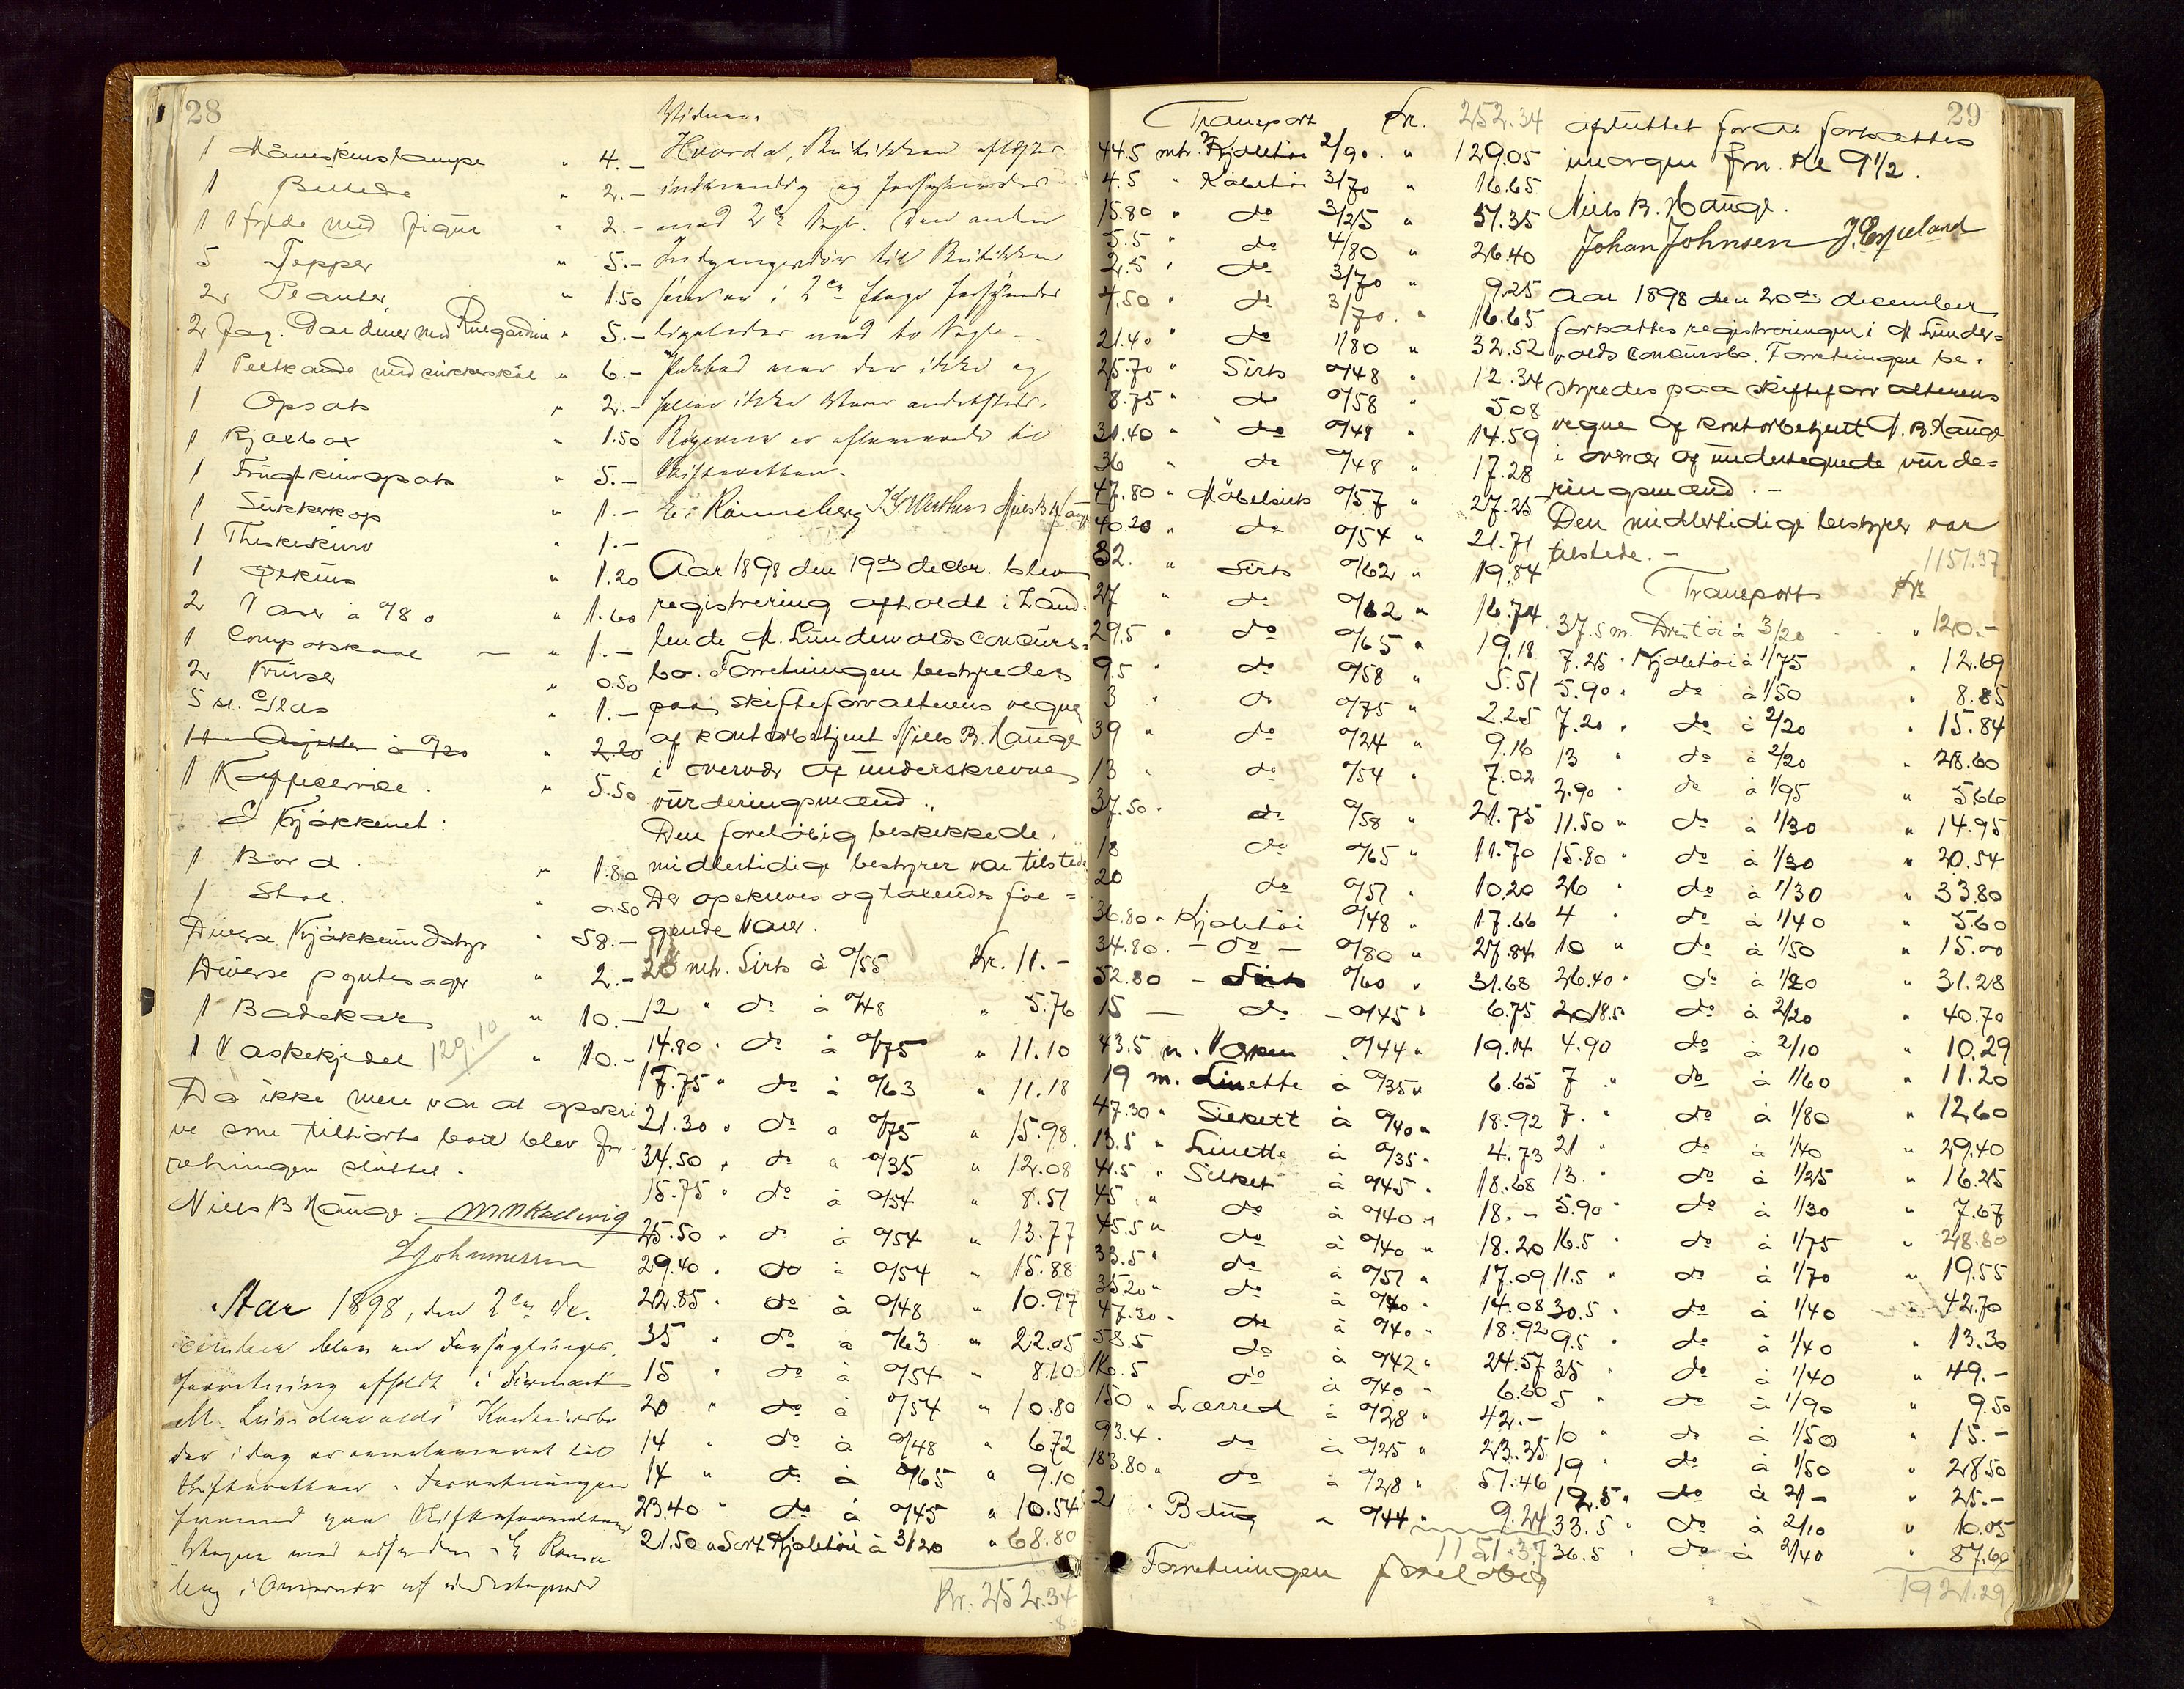 28
1 Måneskinslampe " 4.-
1 Billede " 2.-
1 Hylde med figur " 2.-
5 Tepper " 5.-
2 Planter " 1.50
2 fag. Gardiner med Rullegardine " 5.-
1 med sukkerskål " 6.-
1 Opsats " 2.-
1 " 1.50
1 Frugtkurvopsats " 5.-
1 Sukkerkop " 1.-
1 Theskekurv " 1.-
1 " 1.20
2 Vaser à 0/80 " 1.60
1 Compotskaal — " 1.-
2 Kruser " 0.50
5 st. Glas " 1.-
11 - Asjetter à 0/20 " 2.20
1 Kaffeservice . " 5.50
I Kjøkkenet:
1 Bord . " 1.80
1 Stol. " 0.50
Diverse Kjøkkenudstyr " 58.-
Diverse pyntesager " 2.-
1 Badekar " 10.-
1 Vaskekjedel 129.10 " 10.-
Da ikke mere var at opskri
ve som tilhørte boet blev for-
retningen sluttet.
Niels B Hauge. M N Kallevig
Aar 1898, den 2den De-
cember blev en Forseglings-
forretning afholdt i Firmaet
M. Lundervolds Konkursbo
der i dag er anmeldt til
Skifteretten. Forretningen
Vidner.
Hvorda, Butikken aflåstes
indvendig og forsegledes
med 2de Segl. Den anden
Indgangsdør til Butikken
som er i 2den Etage forsegledes
ligeledes med to Segl.-
var der ikke og
heller ikke Varer andetsteds.
Skifteretten.
E. Rønneberg Niels B Hauge
Aar 1898 den 19de decbr. blev
registrering afholdt i Hand-
lende M. Lundervolds concurs-
bo. Forretningen bestyredes
paa skifteforvalterens vegne
af kontorbetjent Niels B. Hauge
i overvær af underskrevne
vurderingsmænd.
Den foreløbig beskikkede,
midlertidige bestyrer var tilstede
Der opskreves og taxeredes føl=
gende Varer.
20 mtr. Sirts à 0/55 Kr. 11.-
12 " do à 0/48 " 5.76
14.80 " do à 0/75 " 11.10
17.75 " do à 0/63 " 11.18
21.30 " do à 0/75 " 15.98
34.50 " do à 0/35 " 12.08
15.75 " do à 0/54 " 8.51
25.50 " do à 0/54 " 13.77
29.40 " do à 0/54 " 15.88
22.85 " do à 0/48 " 10.97
35 " do à 0/63 " 22.05
15 " do à 0/54 " 8.10
20 " do à 0/54 " 10.80
14 " do à 0/48 " 6.72
14 " do à 0/65 " 9.10
23.40 " do à 0/45 " 10.54
21.50 " Sort Kjoletøi à 3/20 " 68.80
Kr. 252.34
29
Transport Kr. 252.34
44.5 mtr. Kjoletøi 2/90 " 129.05
4.5 " Kåbetøi 3/70 " 16.65
15.80 " do 3/25 " 51.35
5.5 " do 4/80 " 26.40
2.5 " do 3/70 " 9.25
4.50 " do 3/70 " 16.65
21.40 " do 1/80 " 32.52
25.70 " Sirts 0/48 " 12.34
8.75 " do 0/58 5.08
31.40 " do 0/48 " 14.59
36 " do 0/48 " 17.28
47.80 " Møbelsirts 0/57 " 27.25
40.20 " do 0/54 " 21.71
32. " Sirts 0/62 " 19.84
27 " do 0/62 " 16.74
29.5 " do 0/65 " 19.18
9.5 " do 0/58 " 5.51
3 " do 0/75 " 2.25
39 " do 0/24 " 9.16
13 " do 0/54 " 7.02
37.50 " do 0/58 " 21.75
18 do 0/65 " 11.70
20 do 0/51 " 10.20
36.80 " Kjoletøi 0/48 " 17.66
34.80. - do - 0/80 " 27.84
52.80 - Sirts 0/60 " 31.68
15 — do - 0/45 " 6.75
43.5 m. 0/44 " 19.14
19 m. Linette à 0/35 " 6.65
47.30 " Silkett à 0/40 " 18.92
13.5 " Linette à 0/35 " 4.73
41.5 " Silket à 0/45 " 18.68
45 " do à 0/40 " 18.-
45.5 " do à 0/40 " 18.20
33.5 " do à 0/51 " 17.09
35.20 " do à 0/40 " 14.08
47.30 " do à 0/40 " 18.92
58.5 do à 0/42 " 24.57
16.5 do à 0/40 " 6.60
150 " Lærred à 0/28 " 42.-
93.4 " do à 0/25 " 23.35
183.80 " do à 0/28 " 51.46
21 " à 0/44 " 9.24
1151.37
Forretningen foreløbig
afsluttet forat fortsættes
imorgen frm. Kl 9 1/2.
Niels B. Hauge.
Johan Johnsen J. Espeland
Aar 1898 den 20de december
fortsattes registreringen i M. Lunder=
volds concursbo. Forretningen be-
styredes paa skifteforvalterens
vegne af kontorbetjent N. B. Hauge
i overvær af undertegnede vurde=
ringsmænd.-
Den midlertidige bestyrer var
tilstede.-
1151.37
Transport Kr
37.5 m. à 3/20 " 120.-
7.25 " Kjoletøi à 1/75 " 12.69
5.90 " do à 1/50 " 8.85
7.20 " do à 2/20 " 15.84
13 " do à 2/20 " 28.60
2.90 " do à 1/95 " 5.66
11.50 " do à 1/30 " 14.95
15.80 " do à 1/30 " 20.54
26 " do à 1/30 " 33.80
4 " do à 1/40 " 5.60
10 " do à 1/50 " 15.00
26.40 " do à 1/20 " 31.28
18.5 do à 2/20 " 40.70
4.90 do à 2/10 " 10.29
7 " do à 1/60 " 11.20
7. " do à 1/80 " 12.60
21 " do à 1/40 " 29.40
13. " do à 1/25 " 16.25
5.90 " do à 1/30 " 7.67
16.5 " do à 1/75 " 28.80
11.5 " do à 1/70 " 19.55
30.5 " do à 1/40 " 42.70
9.5 " do à 1/40 " 13.30
35 " do à 1/40 " 49.-
5 " do à 1/90 " 9.50
10 " do à 1/50 " 15.-
19 " do à 1/50 " 28.50
12.5 " do à 2/- " 25.-
33.5 " do à 2/10 " 10.05
36.5 " do à 2/40 " 87.60
1921.29